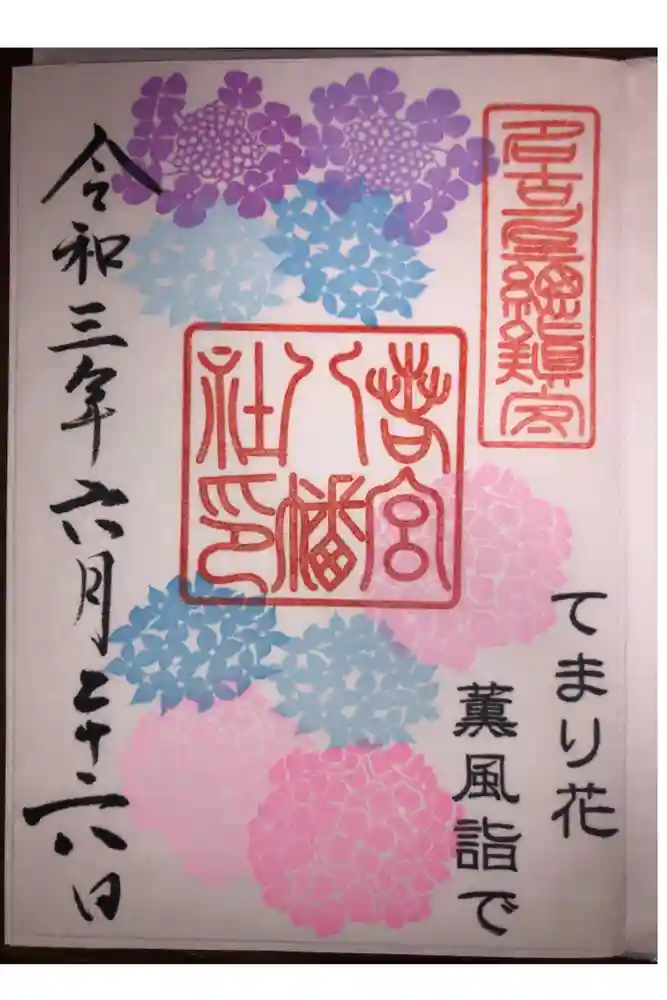 名古屋總鎮守
てまり花
薫風詣で
若宮
八幡
社印
令和三年六月二十六日